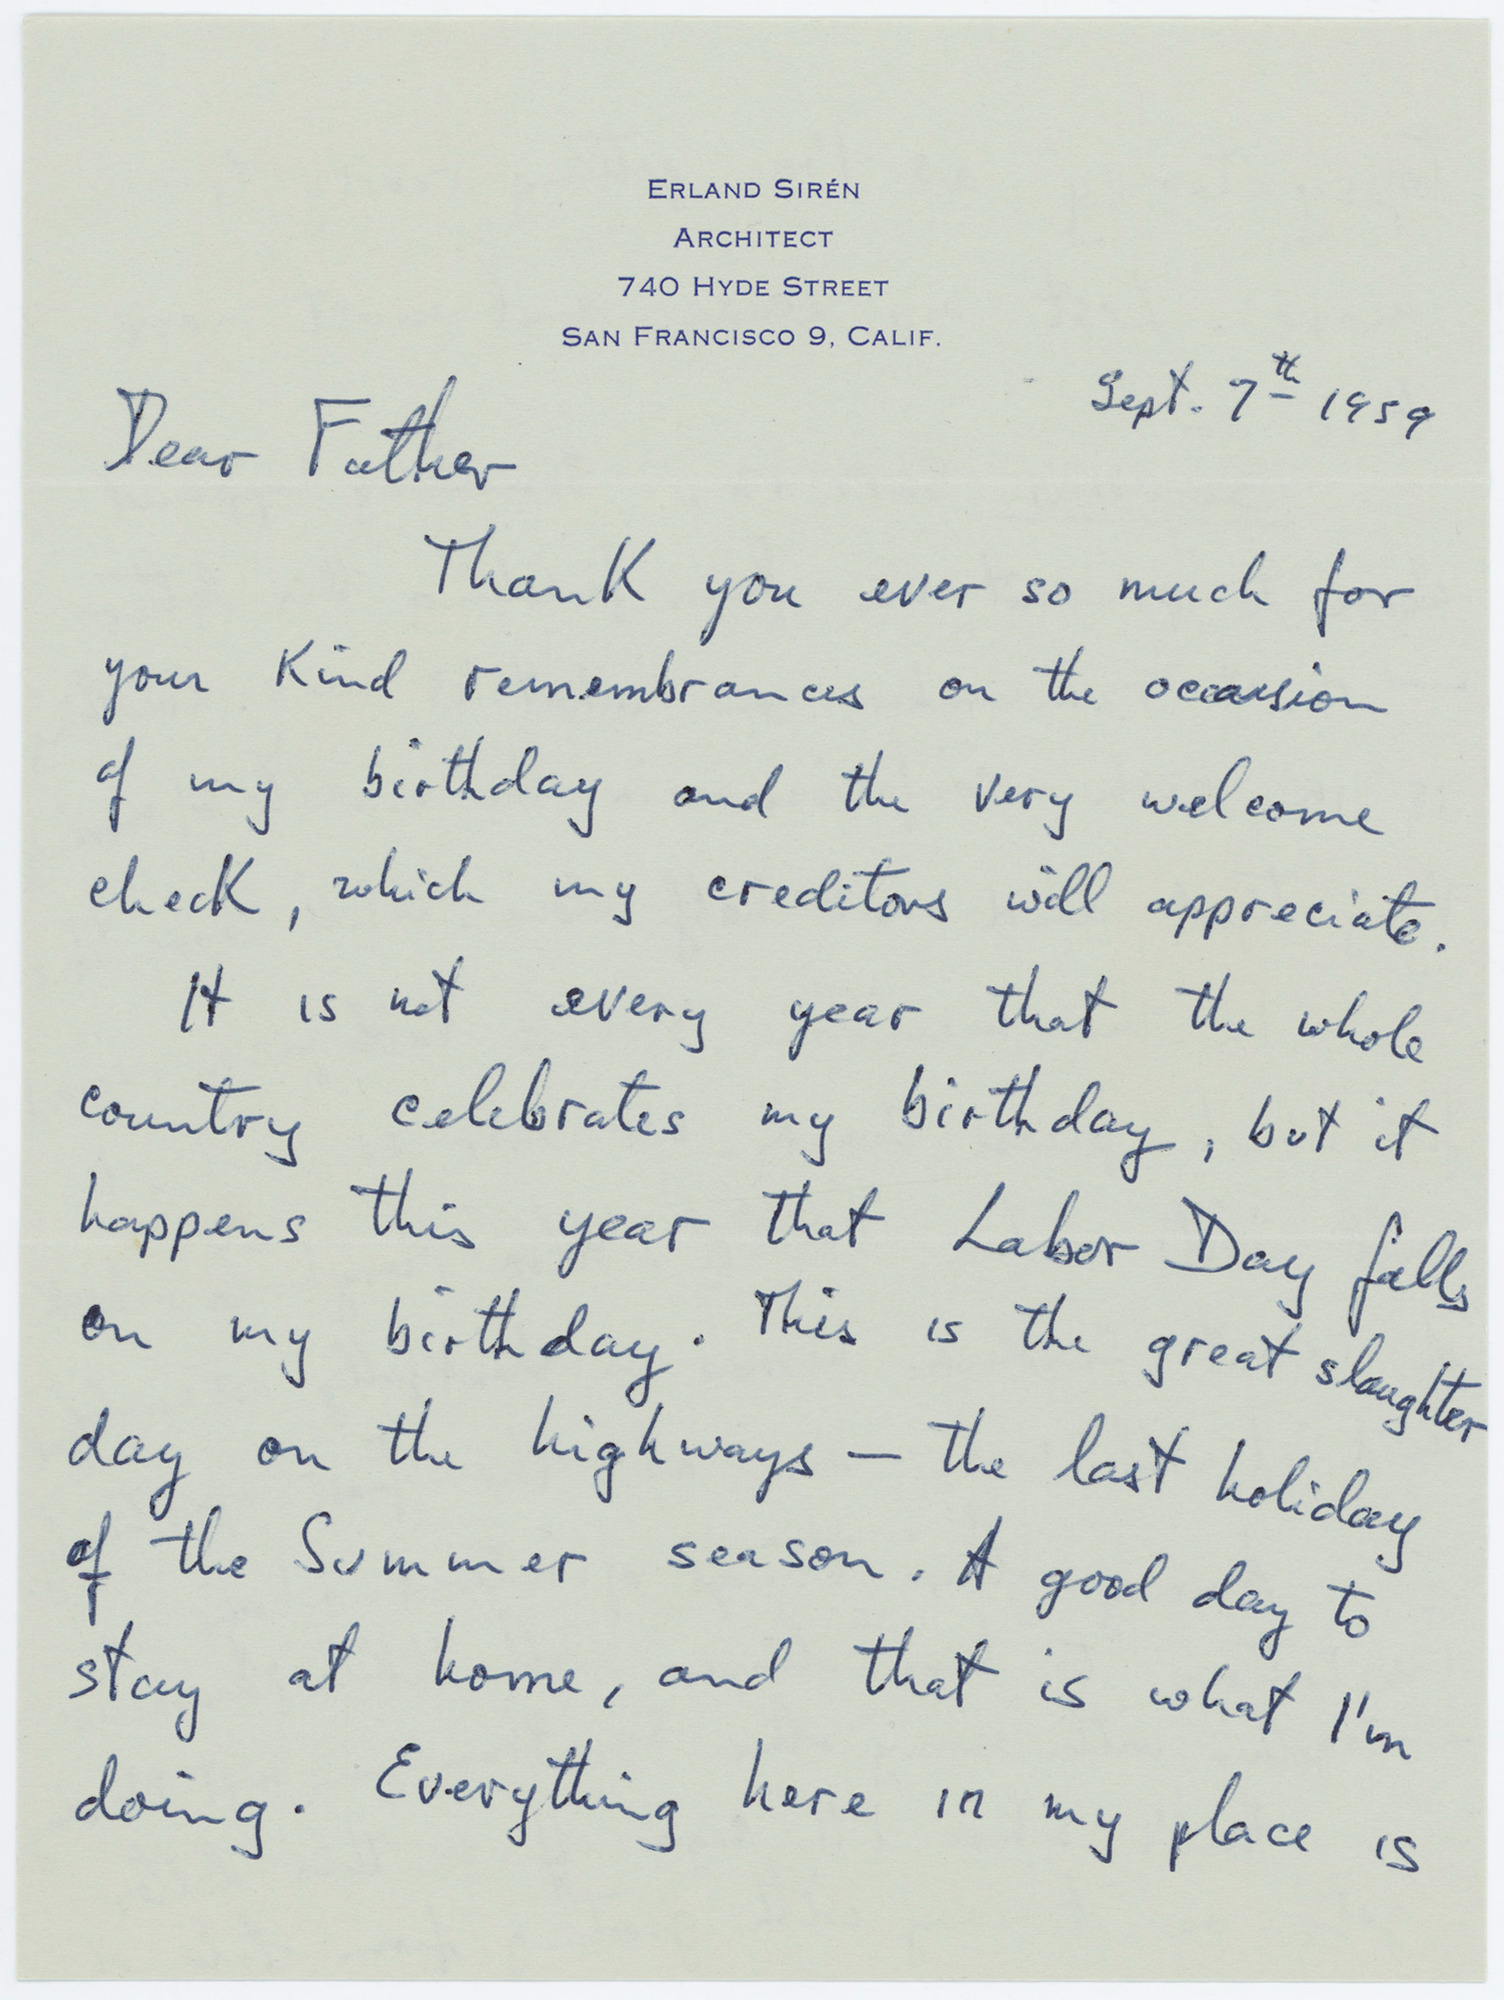 ERLAND SIRÉN
ARCHITECT
740 HYDE STREET
SAN FRANCISCO 9, CALIF.
Sept. 7th 1959
Dear Father
Thank you ever so much for
your kind remembrances on the occasion
of my birthday and the very welcome
check, which my creditors will appreciate.
It is not every year that the whole
country celebrates my birthday, but it
happens this year that Labor Day falls
on my birthday. This is the great slaughter
day on the highways — the last holiday
of the Summer season. A good day to
stay at home, and that is what I'm
doing. Everything here in my place is